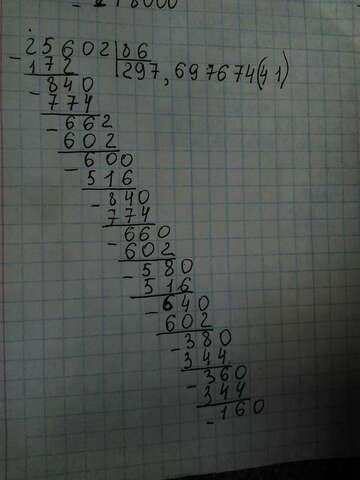 25602|86
- 172 297,697674(41)
- 840
774
- 662
602
- 600
516
- 840
774
- 660
602
- 580
516
- 640
602
- 380
344
- 360
344
- 160